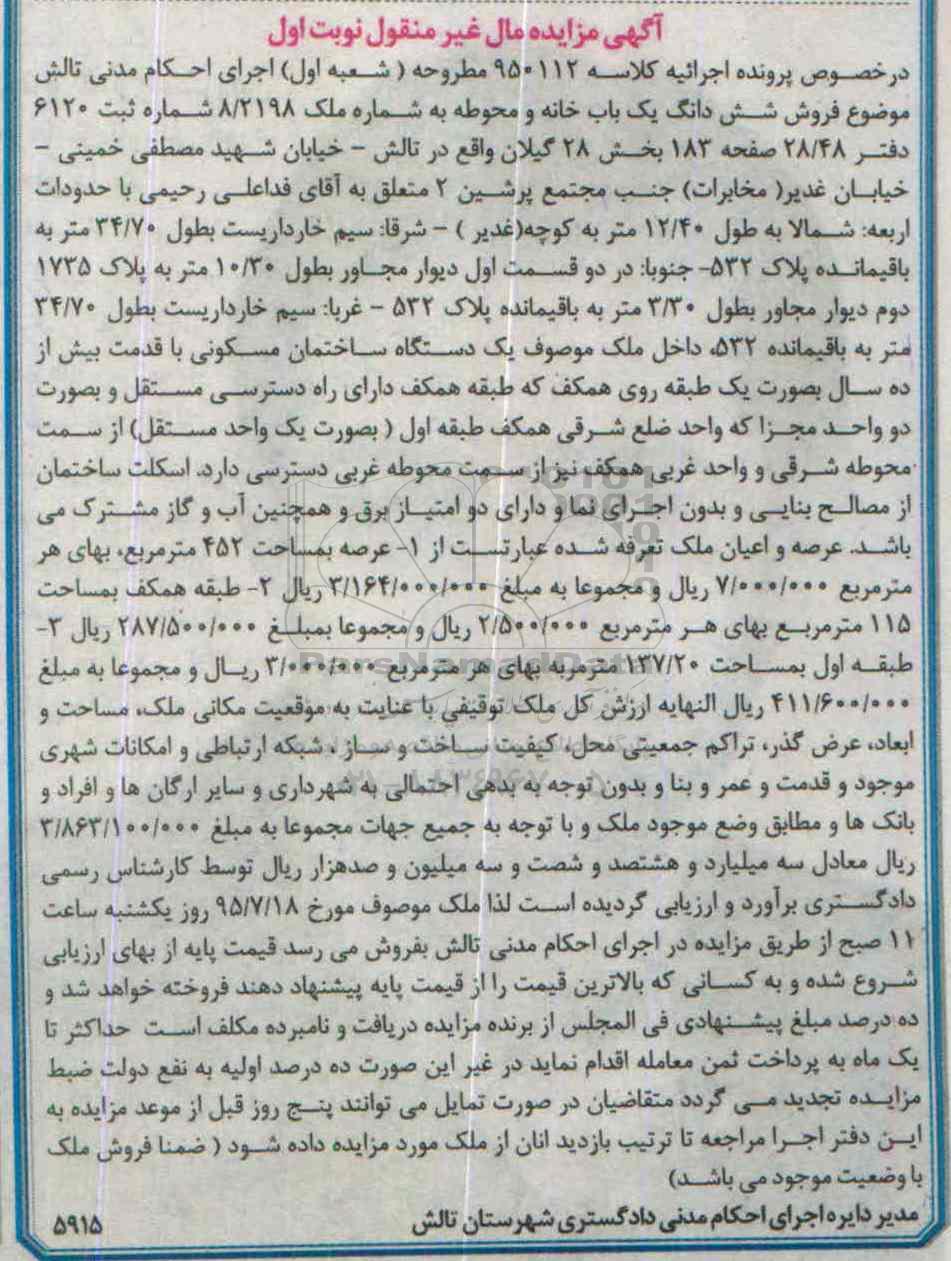 آگهی مزایده مال غیر منقول نوبت اول
درخصوص پرونده اجرائیه کلاسه ۹۵۰۱۱۲ مطروحه ( شعبه اول) اجرای احکام مدنی تالش
موضوع فروش شش دانگ یک باب خانه و محوطه به شماره ملک ۸/۲۱۹۸ شماره ثبت ۶۱۲۰
دفتر ۲۸/۴۸ صفحه ۱۸۳ بخش ۲۸ گیلان واقع در تالش - خیابان شهید مصطفی خمینی -
خیابان غدیر( مخابرات) جنب مجتمع پرشین ۲ متعلق به آقای فداعلی رحیمی با حدودات
اربعه: شمالا به طول ۱۲/۴۰ متر به کوچه(غدیر ) - شرقا: سیم خارداریست بطول ۳۴/۷۰ متر به
باقیمانده پلاک ۵۳۲- جنوبا: در دو قسمت اول دیوار مجاور بطول ۱۰/۳۰ متر به پلاک ۱۷۳۵
دوم دیوار مجاور بطول ۳/۳۰ متر به باقیمانده پلاک ۵۳۲ - غربا: سیم خارداریست بطول ۳۴/۷۰
متر به باقیمانده ۵۳۲، داخل ملک موصوف یک دستگاه ساختمان مسکونی با قدمت بیش از
ده سال بصورت یک طبقه روی همکف که طبقه همکف دارای راه دسترسی مستقل و بصورت
دو واحد مجزا که واحد ضلع شرقی همکف طبقه اول ( بصورت یک واحد مستقل) از سمت
محوطه شرقی و واحد غربی همکف نیز از سمت محوطه غربی دسترسی دارد. اسکلت ساختمان
از مصالح بنایی و بدون اجرای نما و دارای دو امتیاز برق و همچنین آب و گاز مشترک می
باشد. عرصه و اعیان ملک تعرفه شده عبارتست از ۱- عرصه بمساحت ۴۵۲ مترمربع، بهای هر
مترمربع ۷/۰۰۰/۰۰۰ ریال و مجموعا به مبلغ ۳/۱۶۴/۰۰۰/۰۰۰ ریال ۲- طبقه همکف بمساحت
۱۱۵ مترمربع بهای هر مترمربع ۲/۵۰۰/۰۰۰ ریال و مجموعا بمبلغ ۲۸۷/۵۰۰/۰۰۰ ریال ۳-
طبقه اول بمساحت ۱۳۷/۲۰ مترمربه بهای هر مترمربع ۳/۰۰۰/۰۰۰ ریال و مجموعا به مبلغ
۴۱۱/۶۰۰/۰۰۰ ریال النهایه ارزش کل ملک توقیفی با عنایت به موقعیت مکانی ملک، مساحت و
ابعاد، عرض گذر، تراکم جمعیتی محل، کیفیت ساخت و ساز ، شبکه ارتباطی و امکانات شهری
موجود و قدمت و عمر و بنا و بدون توجه به بدهی احتمالی به شهرداری و سایر ارگان ها و افراد و
بانک ها و مطابق وضع موجود ملک و با توجه به جمیع جهات مجموعا به مبلغ ۳/۸۶۳/۱۰۰/۰۰۰
ریال معادل سه میلیارد و هشتصد و شصت و سه میلیون و صدهزار ریال توسط کارشناس رسمی
دادگستری برآورد و ارزیابی گردیده است لذا ملک موصوف مورخ ۹۵/۷/۱۸ روز یکشنبه ساعت
۱۱ صبح از طریق مزایده در اجرای احکام مدنی تالش بفروش می رسد قیمت پایه از بهای ارزیابی
شروع شده و به کسانی که بالاترین قیمت را از قیمت پایه پیشنهاد دهند فروخته خواهد شد و
ده درصد مبلغ پیشنهادی فی المجلس از برنده مزایده دریافت و نامبرده مکلف است حداکثر تا
یک ماه به پرداخت ثمن معامله اقدام نماید در غیر این صورت ده درصد اولیه به نفع دولت ضبط
مزایده تجدید می گردد متقاضیان در صورت تمایل می توانند پنج روز قبل از موعد مزایده به
این دفتر اجرا مراجعه تا ترتیب بازدید انان از ملک مورد مزایده داده شود ( ضمنا فروش ملک
با وضعیت موجود می باشد)
مدیر دایره اجرای احکام مدنی دادگستری شهرستان تالش ۵۹۱۵